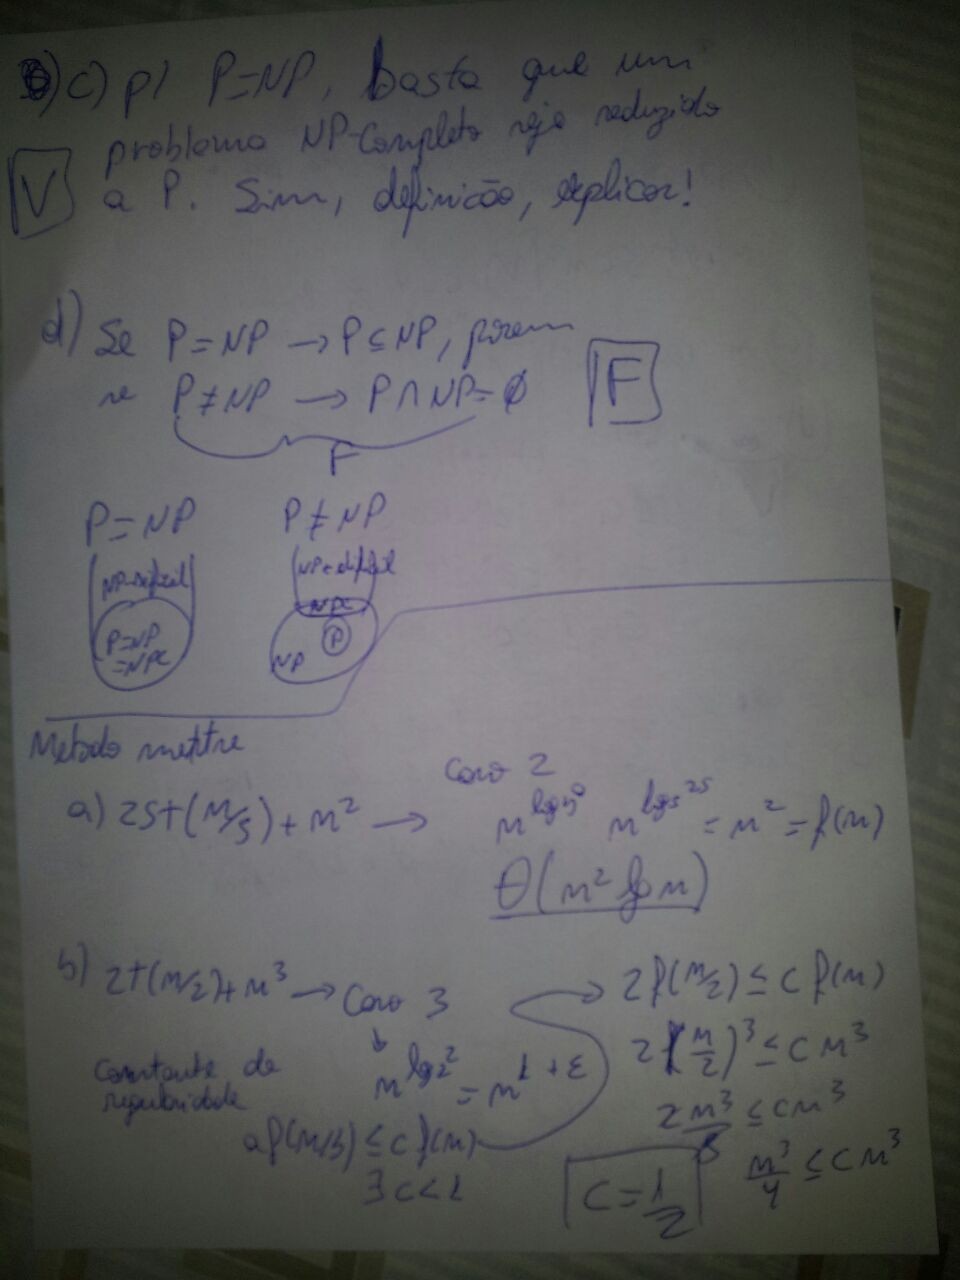 c) p/ P=NP, basta que um
problema NP-Completo seja reduzido
a P. Sim, definição, explicar!
V
d) Se P=NP → P⊆NP, porem
se P≠NP → P∩NP=∅
F
F
P=NP P≠NP
NP-dificil NP-dificil
NPC
P=NP
=NPC
P
NP
Metodo mestre
Caso 2
a) 25T(n/5)+n² →
n^log_5^25 = n² = f(n)
θ(n² lg n)
b) 2T(n/2)+n³ → Caso 3
n^log_2^2 = n^1+ε
Constante de
regularidade
af(n/b) ≤ c f(n)
∃ c<1
2f(n/2) ≤ c f(n)
2(n/2)³ ≤ c n³
2n³/8 ≤ cn³
n³/4 ≤ c n³
c=1/2